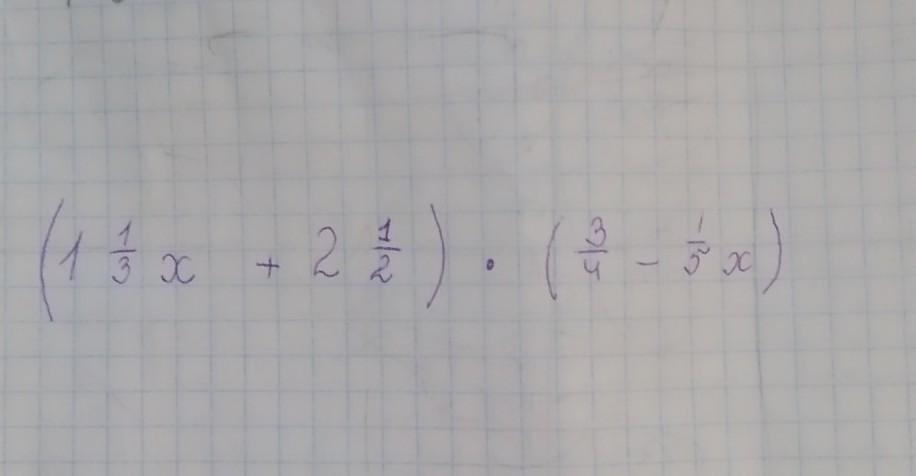 (1 1/3 x + 2 1/2) · (3/4 - 1/5 x)